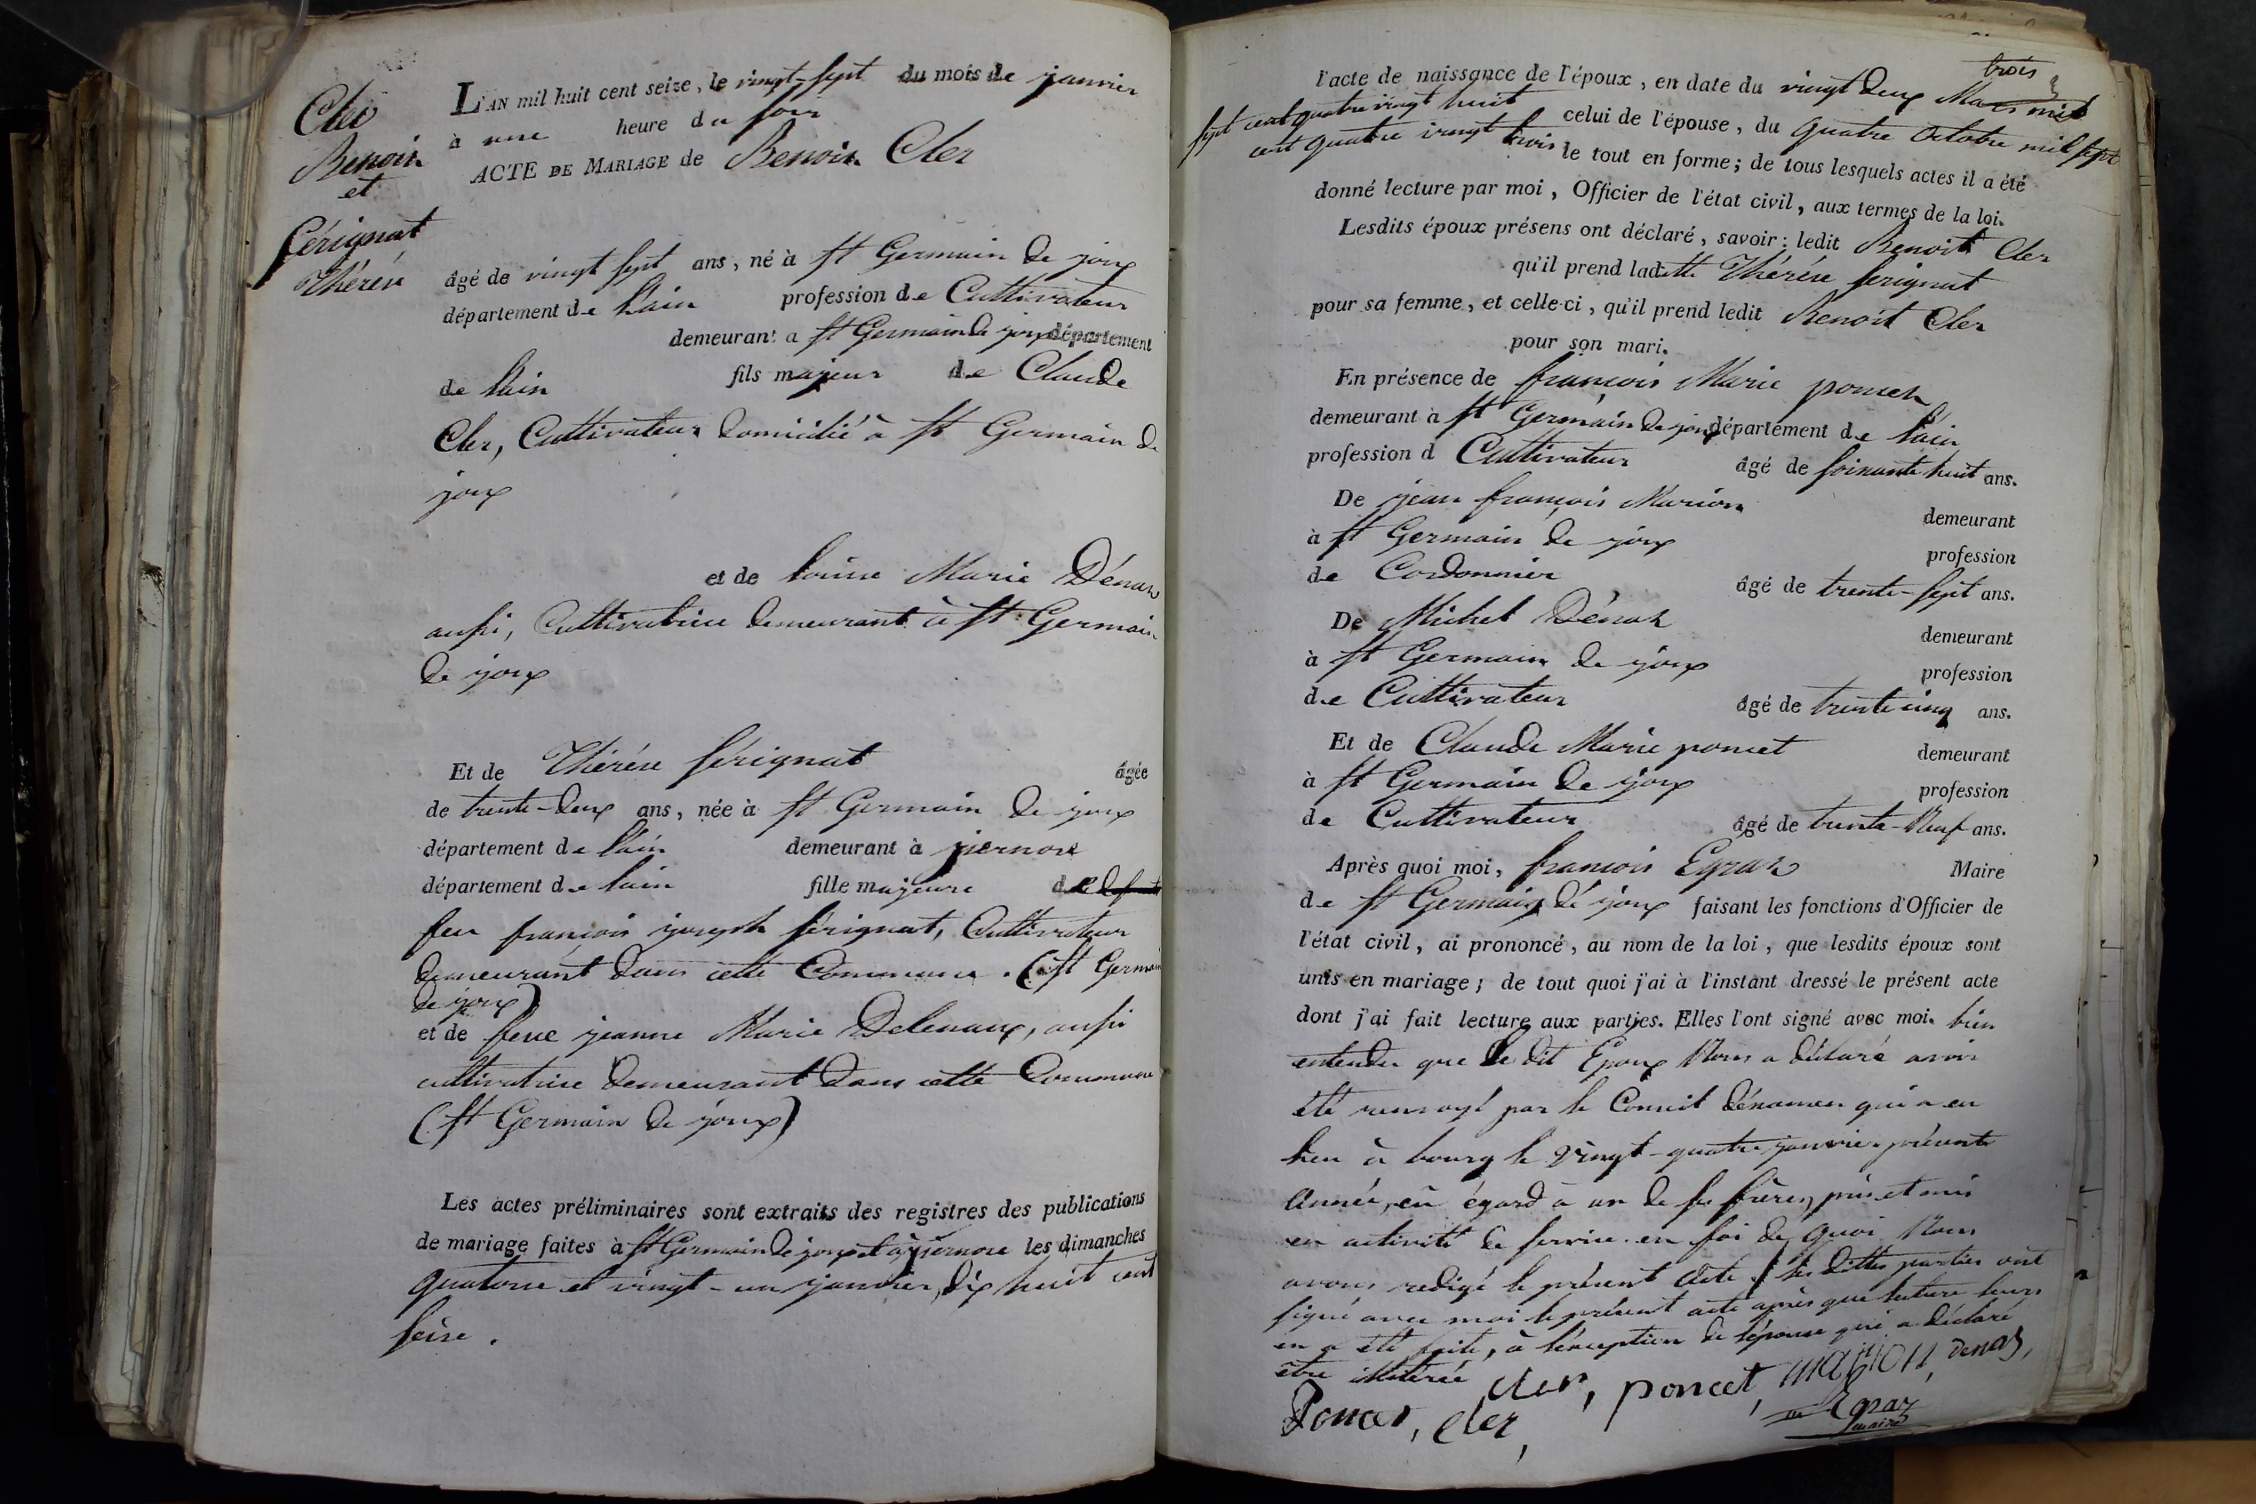 Cler
Benoit
et
Sérignat
Thérése
L'AN mil huit cent seize, le vingt-sept du mois de janvier
à une heure du soir
ACTE DE MARIAGE de Benoit Cler
âgé de vingt sept ans, né à St Germain de joux
département de l'ain profession de Cultivateur
demeurant à St Germain de joux département
de l'ain fils majeur de Claude
Cler, Cultivateur domicilié à St Germain de
joux
et de louise Marie Dénaz
aussi, Cultivatrice demeurant à St Germain
de joux
Et de Thérése Sérignat âgée
de trente-deux ans, née à St Germain de joux
département de l'ain demeurant à jzernore
département de l'ain fille majeure de
feu françois joseph Sérignat, Cultivateur
demeurant dans cette Commune. (St Germain
de joux)
et de feue jeanne Marie Delenaux, aussi
cultivatrice demeurant dans cette Commune
(St Germain de joux)
Les actes préliminaires sont extraits des registres des publications
de mariage faites à St Germain de joux et à jzernore les dimanches
quatorze et vingt-un janvier, dix huit cent
seize.
trois
l'acte de naissance de l'époux, en date du vingt deux Mars mil
sept cent quatre vingt huit celui de l'épouse, du quatre Octobre mil sept
cent quatre vingt trois le tout en forme; de tous lesquels actes il a été
donné lecture par moi, Officier de l'état civil, aux termes de la loi.
Lesdits époux présens ont déclaré, savoir: ledit Benoit Cler
qu'il prend ladette Thérése Serignat
pour sa femme, et celle-ci, qu'il prend ledit Benoit Cler
pour son mari.
En présence de françois Marie poncet
demeurant à St Germain de joux département de l'ain
profession d Cultivateur âgé de soixante huit ans.
De jean françois Marion demeurant
à St Germain de joux profession
de Cordonnier âgé de trente-sept ans.
De Michel Dénaz demeurant
à St Germain de joux profession
de Cultivateur âgé de trente cinq ans.
Et de Claude Marie poncet demeurant
à St Germain de joux profession
de Cultivateur âgé de trente-Neuf ans.
Après quoi moi, françois Egraz Maire
de St Germain de joux faisant les fonctions d'Officier de
l'état civil, ai prononcé, au nom de la loi, que lesdits époux sont
unis en mariage; de tout quoi j'ai à l'instant dressé le présent acte
dont j'ai fait lecture aux parties. Elles l'ont signé avec moi. bien
entendu que le dit Epoux Nous a déclaré avoir
été renvoyé par le Conseil d'éxamen qui a eu
lieu à bourg le vingt-quatre janvier présente
Année, eû égard à un de ses frères, pris et mis
en activité de service. en foi de quoi Nous
avons redigé le présent Acte / les dittes parties ont
signé avec moi le présent acte après que lecture leurs
en a été faite, à l'exception de l'épouse qui a déclaré
être illitérée cler, poncet, marion, denaz,
Poncet, Cler, Egraz
maire